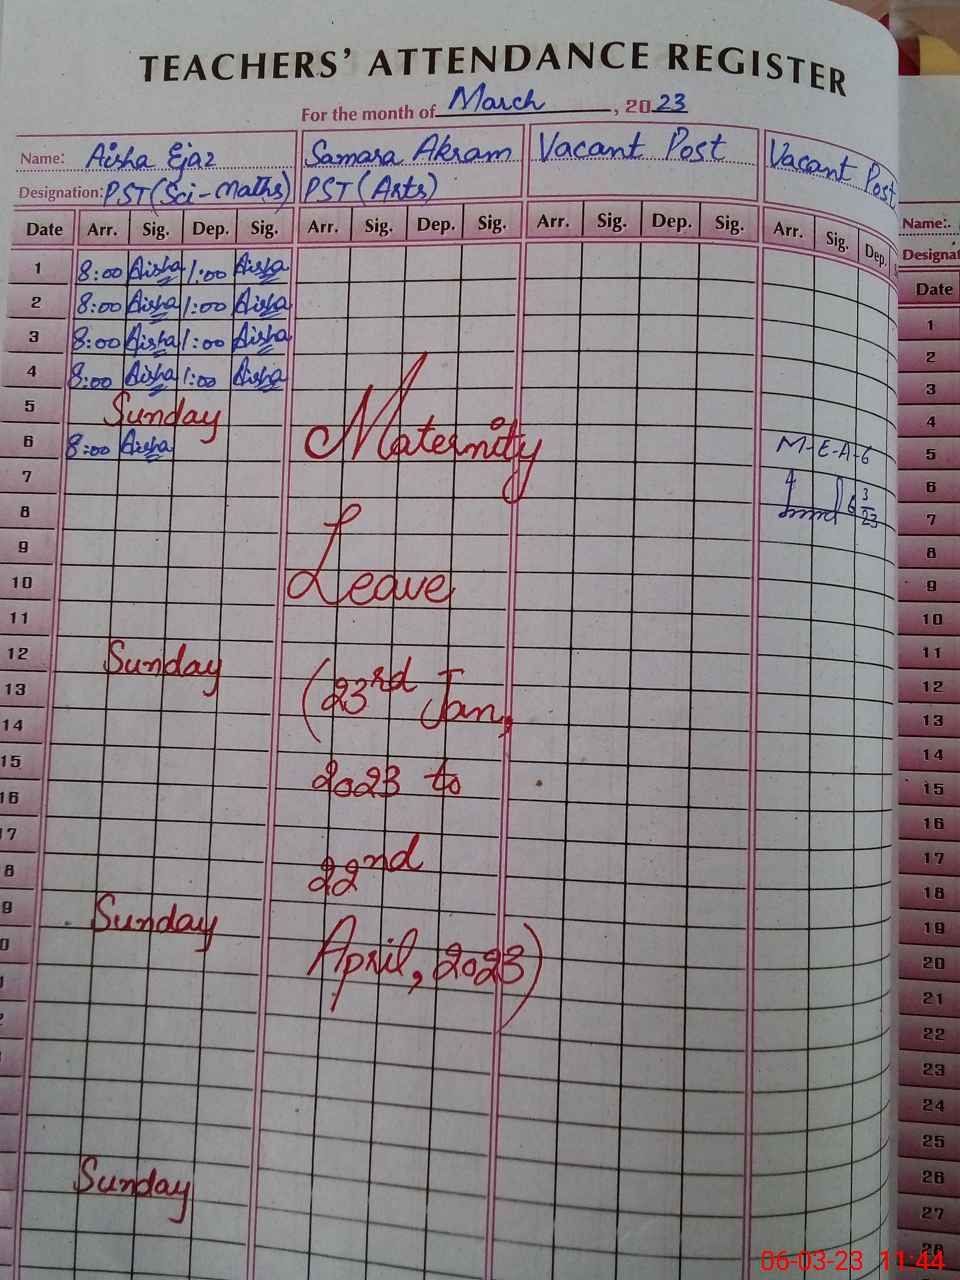 TEACHERS' ATTENDANCE REGISTER
For the month of March, 2023
Name: Aisha Ejaz Samara Akram Vacant Post Vacant Post
Designation: PST (Sci-Maths) PST (Arts)
Date Arr. Sig. Dep. Sig. Arr. Sig. Dep. Sig. Arr. Sig. Dep. Sig. Arr. Sig. Dep.
1 8:00 Aisha 1:00 Aisha
2 8:00 Aisha 1:00 Aisha
3 8:00 Aisha 1:00 Aisha
4 8:00 Aisha 1:00 Aisha
5 Sunday
6 8:00 Aisha
7
8
9
10
11
12 Sunday
13
14
15
16
17
8
9 Sunday
0
Sunday
Maternity
Leave
(23rd Jan,
2023 to
22nd
April, 2023)
M-E-A-6
6 3
23
Name:
Designat
Date
1
2
3
4
5
6
7
8
9
10
11
12
13
14
15
16
17
18
19
20
21
22
23
24
25
26
27
28
06-03-23 11:44